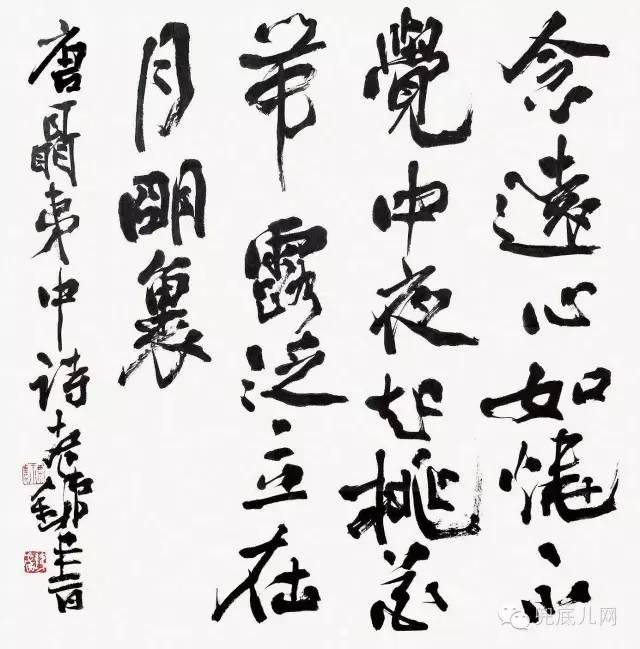 念遠心如燒不
覺中夜起桃花
帶露泛立在
月明裏
唐聶夷中詩
兜底儿网